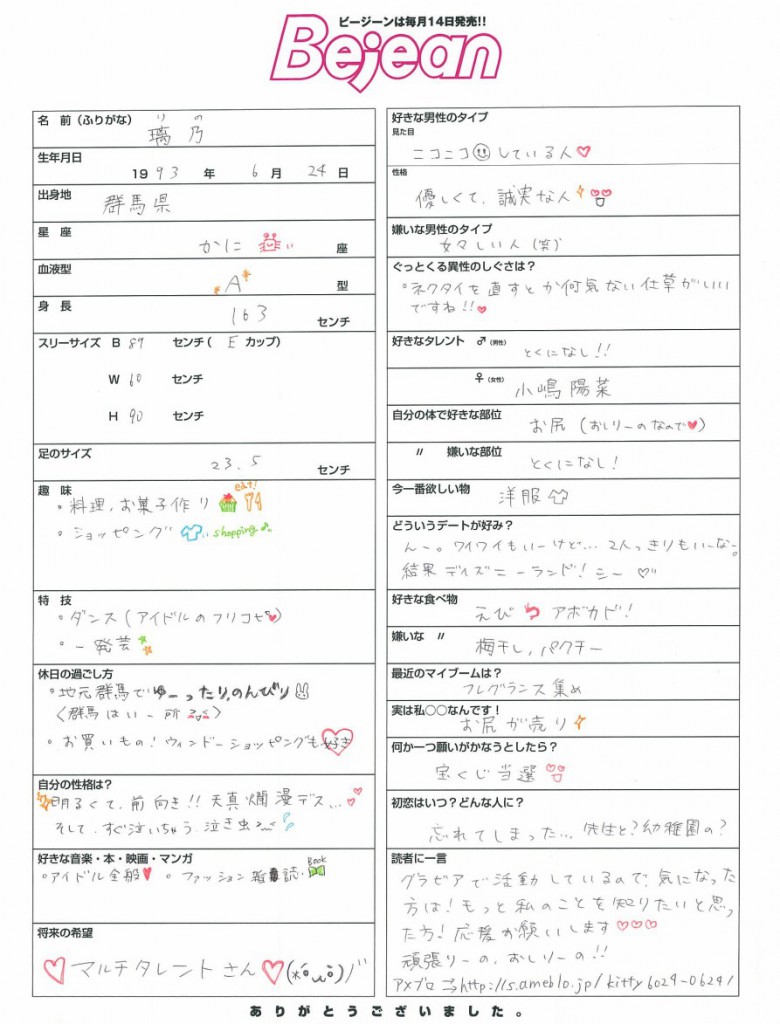 ビージーンは毎月14日発売!!
Bejean
名 前(ふりがな)
りの
璃乃
生年月日
1993 年 6 月 24 日
出身地
群馬県
星 座
かに 座
血液型
A 型
身 長
163 センチ
スリーサイズ B 89 センチ( E カップ)
W 60 センチ
H 90 センチ
足のサイズ
23.5 センチ
趣 味
eat!
・料理、お菓子作り
・ショッピング shopping♪
特 技
・ダンス(アイドルのフリコピ♥)
・一発芸
休日の過ごし方
・地元群馬でゆーったり,のんびり
(群馬はいー所)
・お買いもの!ウィンドーショッピングも好き
自分の性格は?
明るくて、前向き!!天真爛漫デス...
そして、すぐ泣いちゃう、泣き虫
好きな音楽・本・映画・マンガ
Book
・アイドル全般♥ ・ファッション雑誌・
将来の希望
♡マルチタレントさん♡
好きな男性のタイプ
見た目
ニコニコ☺している人♡
性格
優しくて、誠実な人
嫌いな男性のタイプ
女々しい人(笑)
ぐっとくる異性のしぐさは?
・ネクタイを直すとか何気ない仕草がいい
ですね!!♥
好きなタレント ♂(男性)
とくになし!!
♀(女性)
小嶋陽菜
自分の体で好きな部位
お尻(おしりーのなので♥)
〃 嫌いな部位
とくになし!
今一番欲しい物
洋服
どういうデートが好み?
んー。ワイワイもいーけど...2人っきりもいーなー。
結果ディズニーランド!シー♡
好きな食べ物
えび アボカド!
嫌いな 〃
梅干し,パクチー
最近のマイブームは?
フレグランス集め
実は私○○なんです!
お尻が売り
何か一つ願いがかなうとしたら?
宝くじ当選
初恋はいつ?どんな人に?
忘れてしまった...先生と?幼稚園の?
読者に一言
グラビアで活動しているので、気になった
方は!もっと私のことを知りたいと思っ
た方!応援お願いします♡♡♡
頑張りーの、おしりーの!!
アメブロ→http://s.ameblo.jp/kitty6024-0624/
ありがとうございました。